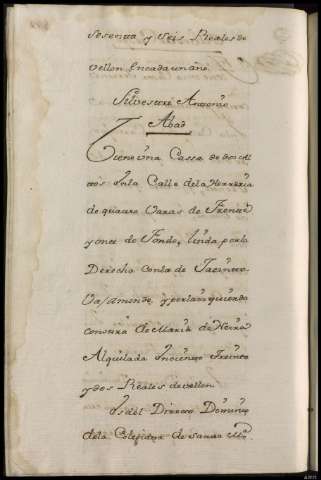 sesenta y seis Reales de
vellon en cada un año.
Silvestre Antonio
Abad
Tiene una Cassa de dos Al
tos En la Calle de la Herreria
de quatro Varas de Frente
y once de Fondo, linda por la
Derecha con la de Jacinto
Vasamonde, y por la izquierda
con otra de Maria de Neira
Alquilada
Treinta
y dos Reales de vellon
Es del Directo Dominio
de la Colegiata de Santa Mª.